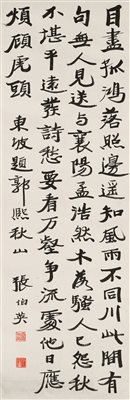 目盡孤鴻落照邊遥知風雨不同川此間有
句無人見送與襄陽孟浩然木落騷人已怨秋
不堪平遠發詩愁要看萬壑爭流處他日應
煩顧虎頭 東坡題郭熙秋山 張伯英